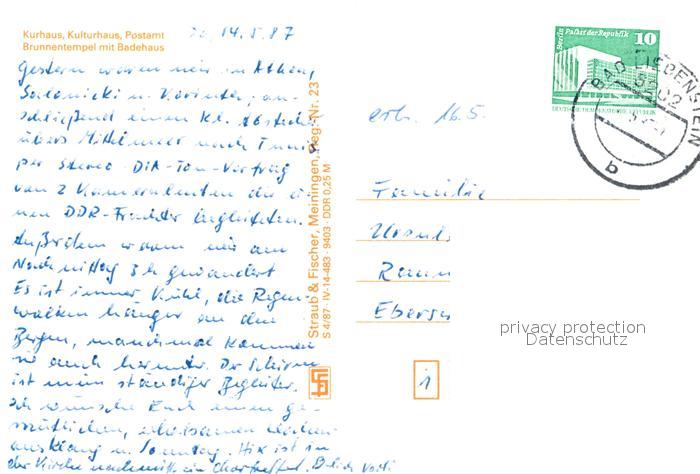 Kurhaus, Kulturhaus, Postamt
Brunnentempel mit Badehaus
Do, 14.5.87
Gestern waren wir in Athen,
Saloniki u. Korinth, an-
schließend einen kl. Abstecher
übers Mittelmeer nach Tunis
per Stereo DIA-Ton-Vortrag
von 2 Kameraleuten die ei-
nen DDR-Frachter begleiteten.
Außerdem waren wir am
Nachmittag 3 h gewandert
Es ist immer kühl, die Regen-
wolken hängen an den
Bergen, manchmal kommen
sie auch herunter. Der Schirm
ist mein ständiger Begleiter.
Ich wünsche Euch einen ge-
mütlichen, erholsamen
ausklang u. Sonntag. Hier ist in
der Kirche
Straub & Fischer, Meiningen, Reg.-Nr. 23
S 4/87 · IV-14-483 · 9403 · DDR 0,25 M
Berlin Palast der Republik
10
DEUTSCHE DEMOKRATISCHE REPUBLIK
BAD LIEBENSTEIN
6202
b
erh. 16.5.
Familie
Ursul
Raun
Ebersw
privacy protection
Datenschutz
i